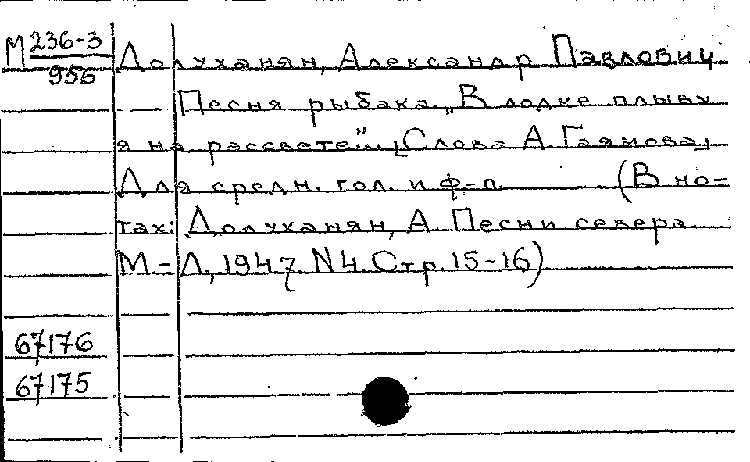 М 236-3
956
Долуханян, Александр Павлович
Песня рыбака „В лодке плыву
я на рассвете". [Слова А. Гаямова]
Для средн. гол. и ф-п. (В но-
тах: Долуханян, А. Песни севера.
М-Л, 1947. N4. Стр. 15-16)
67176
67175